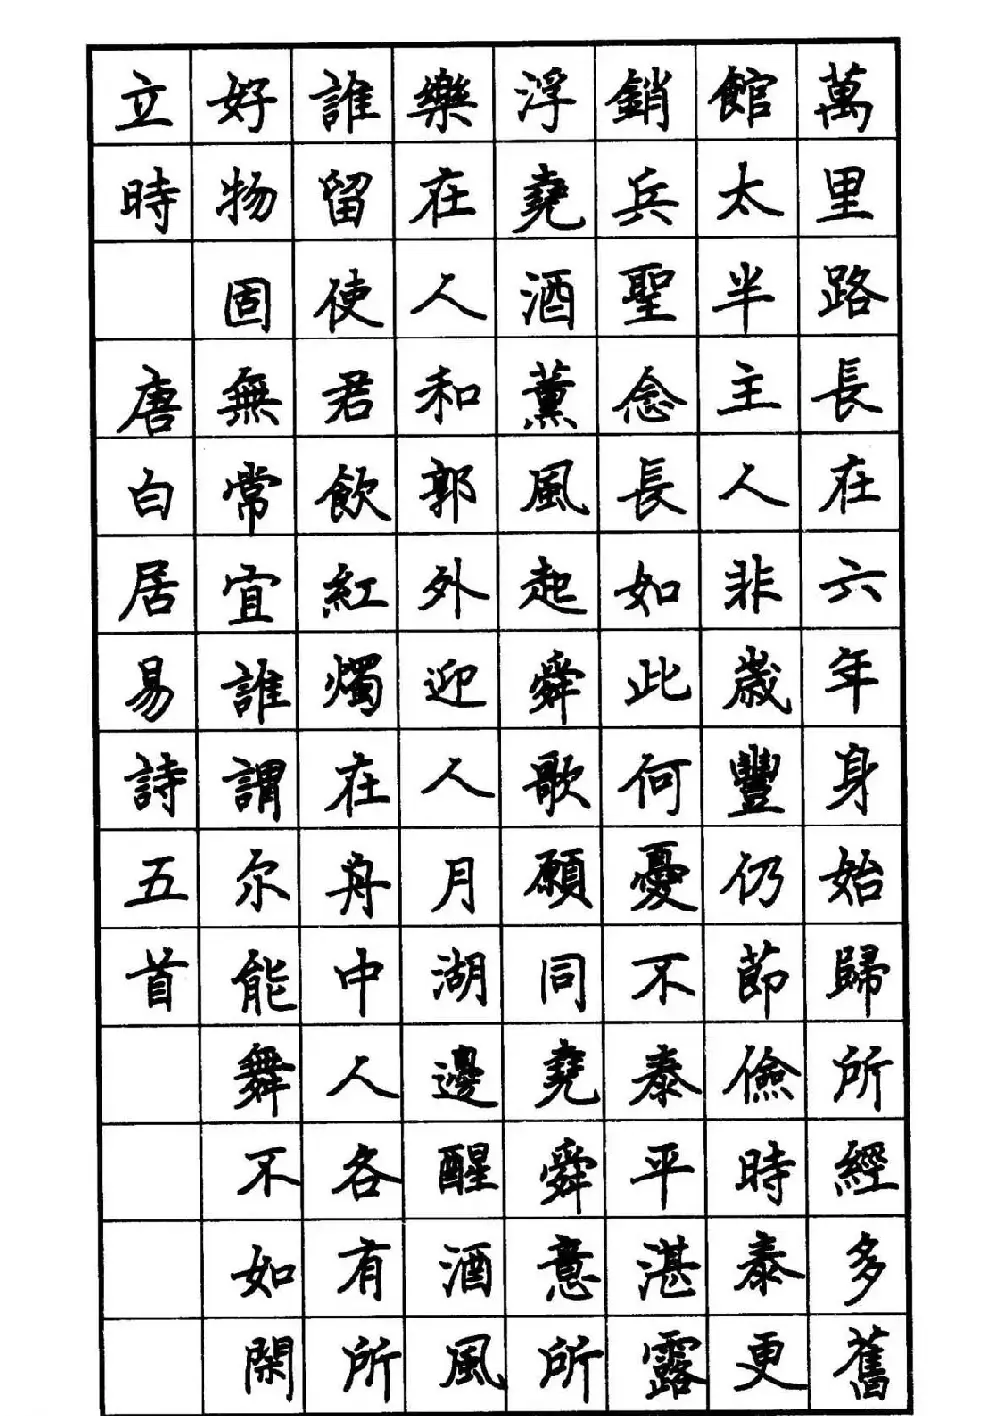 萬里路長在六年身始歸所經多舊
館太半主人非歲豐仍節儉時泰更
銷兵聖念長如此何憂不泰平湛露
浮堯酒薰風起舜歌願同堯舜意所
樂在人和郭外迎人月湖邊醒酒風
誰留使君飲紅燭在舟中人各有所
好物固無常宜誰謂尔能舞不如閑
立時 唐白居易詩五首